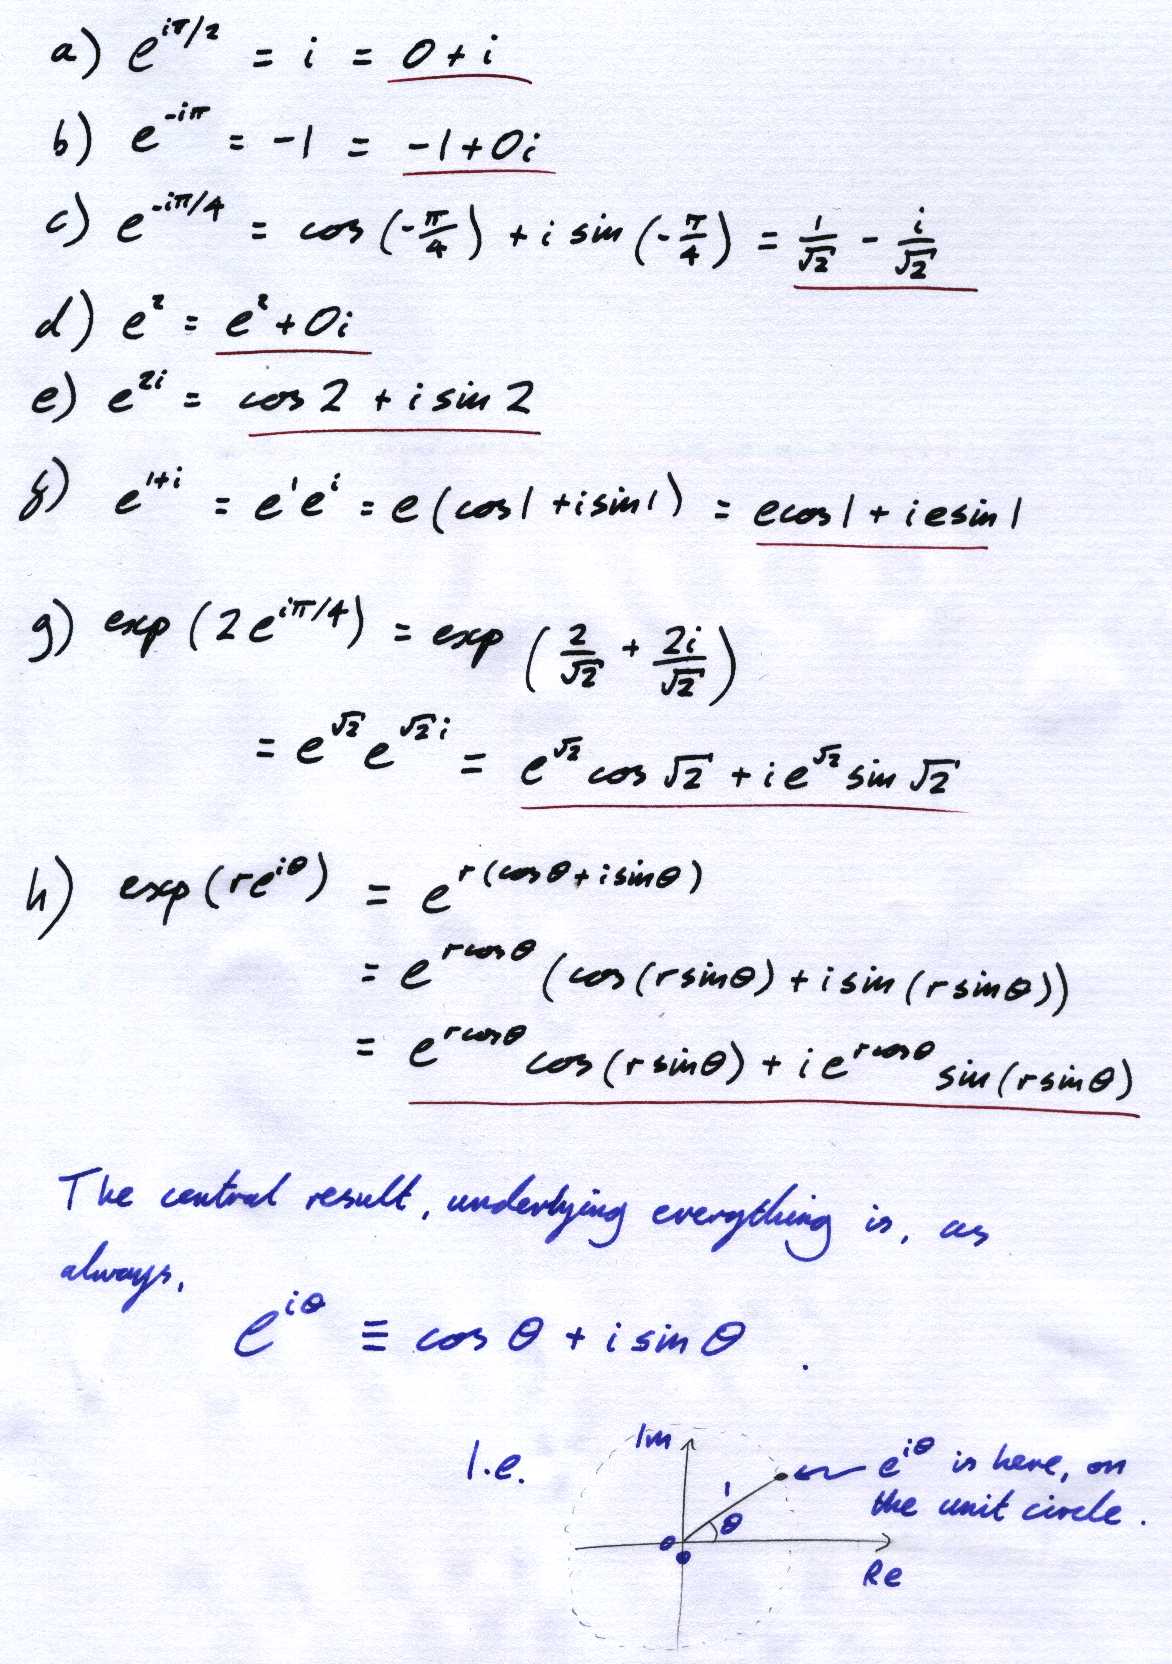 a) e^{iπ/2} = i = 0 + i
b) e^{-iπ} = -1 = -1 + 0i
c) e^{-iπ/4} = cos(-π/4) + i sin(-π/4) = 1/√2 - i/√2
d) e^2 = e^2 + 0i
e) e^{2i} = cos 2 + i sin 2
f) e^{1+i} = e^1 e^i = e(cos 1 + i sin 1) = e cos 1 + i e sin 1
g) exp(2e^{iπ/4}) = exp(2/√2 + 2i/√2)
= e^{√2} e^{√2 i} = e^{√2} cos √2 + i e^{√2} sin √2
h) exp(re^{iθ}) = e^{r(cos θ + i sin θ)}
= e^{r cos θ} (cos(r sin θ) + i sin(r sin θ))
= e^{r cos θ} cos(r sin θ) + i e^{r cos θ} sin(r sin θ)
The central result, underlying everything is, as
always,
e^{iθ} ≡ cos θ + i sin θ.
I.e.
Im
1
θ
0
0
Re
e^{iθ} is here, on
the unit circle.